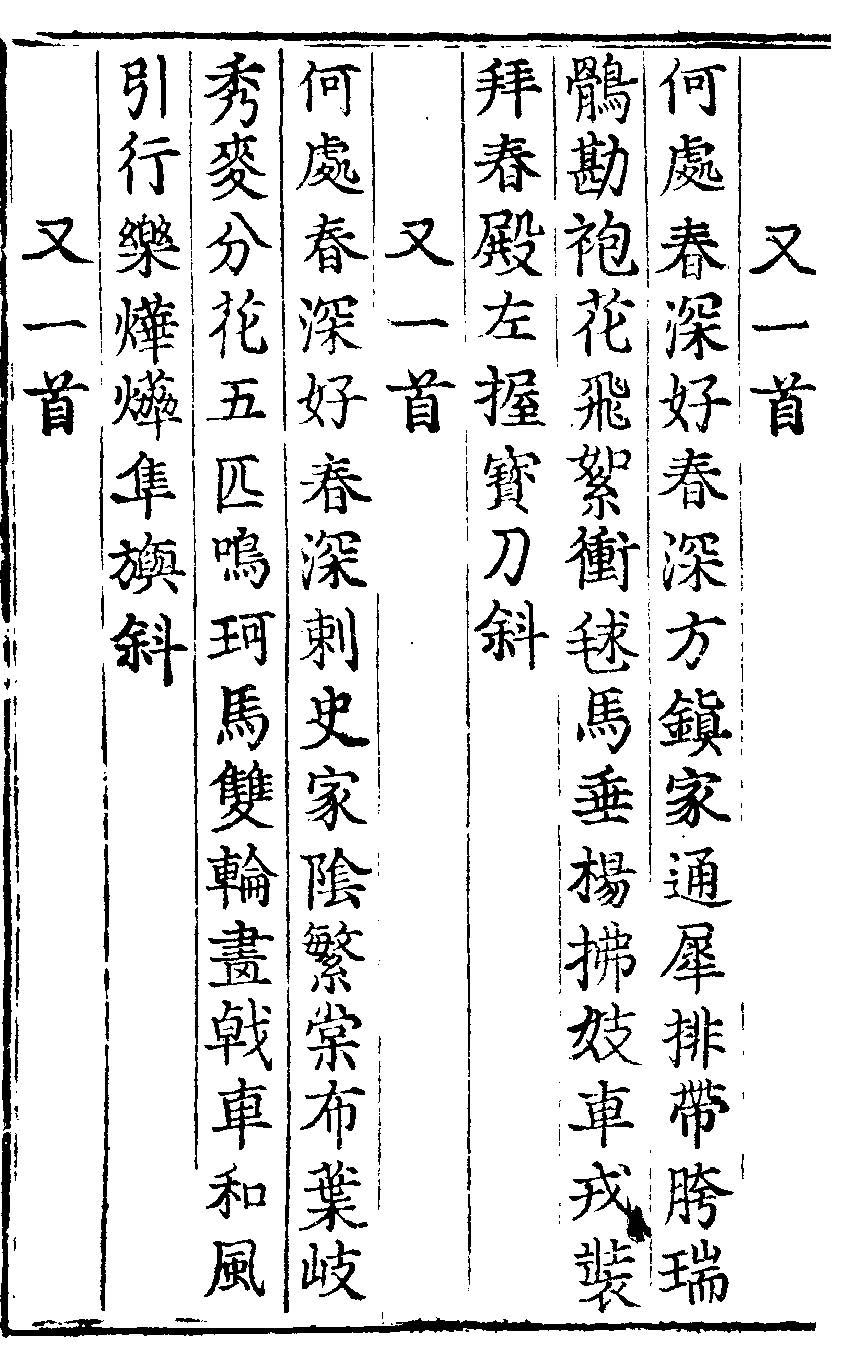 又一首
何處春深好春深方鎮家通犀排帶胯瑞
鶻勘袍花飛絮衝毬馬垂楊拂妓車戎裝
拜春殿左握寶刀斜
又一首
何處春深好春深刺史家陰繁棠布葉岐
秀麥分花五匹鳴珂馬雙輪畫戟車和風
引行樂燁燁隼旟斜
又一首